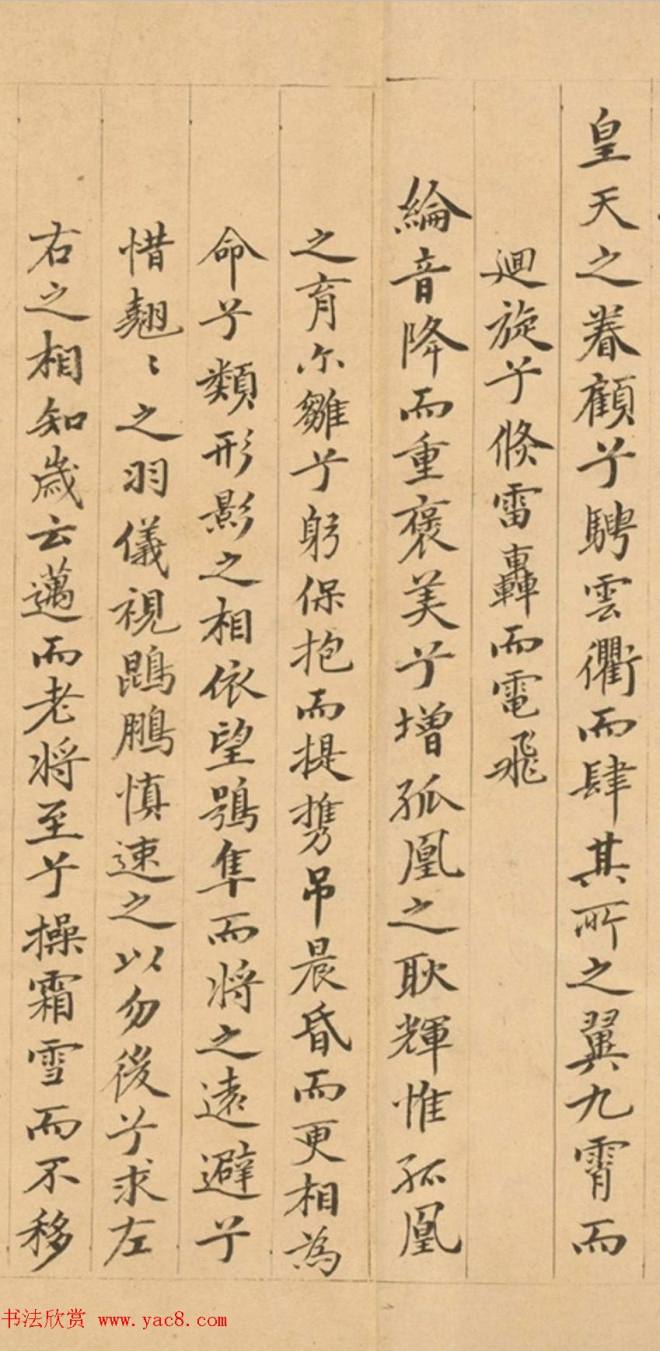 皇天之眷顧兮騁雲衢而肆其所之翼九霄而
迴旋兮倏雷轟而電飛
綸音降而重褒美兮增孤凰之耿輝惟孤凰
之育尓雛兮躬保抱而提携吊晨昏而更相為
命兮類形影之相依望鴞隼而将之遠避兮
惜翹〻之羽儀視鵾鵬慎速之以勿後兮求左
右之相知歲云邁而老将至兮操霜雪而不移
书法欣赏 www.yac8.com